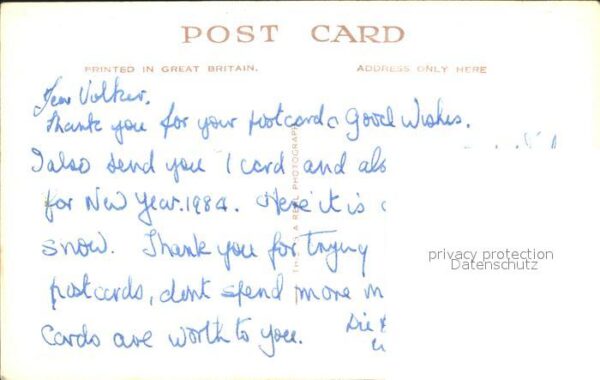 POST CARD
PRINTED IN GREAT BRITAIN.
ADDRESS ONLY HERE
Dear Volker,
Thank you for your postcard & Good Wishes.
I also send you 1 card and als
for New Year.1984. Here it is
snow. Thank you for trying
postcards, dont spend more
cards are worth to you.
THIS IS A REAL PHOTOGRAPH
privacy protection
Datenschutz